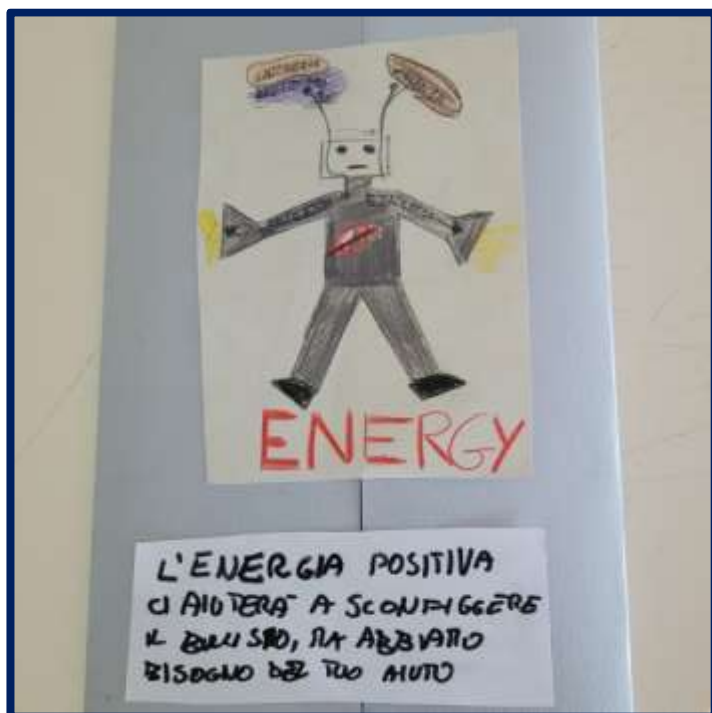 ENERGY
L'ENERGIA POSITIVA
CI AIUTERÀ A SCONFIGGERE
IL BULLISMO, MA ABBIAMO
BISOGNO DEL TUO AIUTO